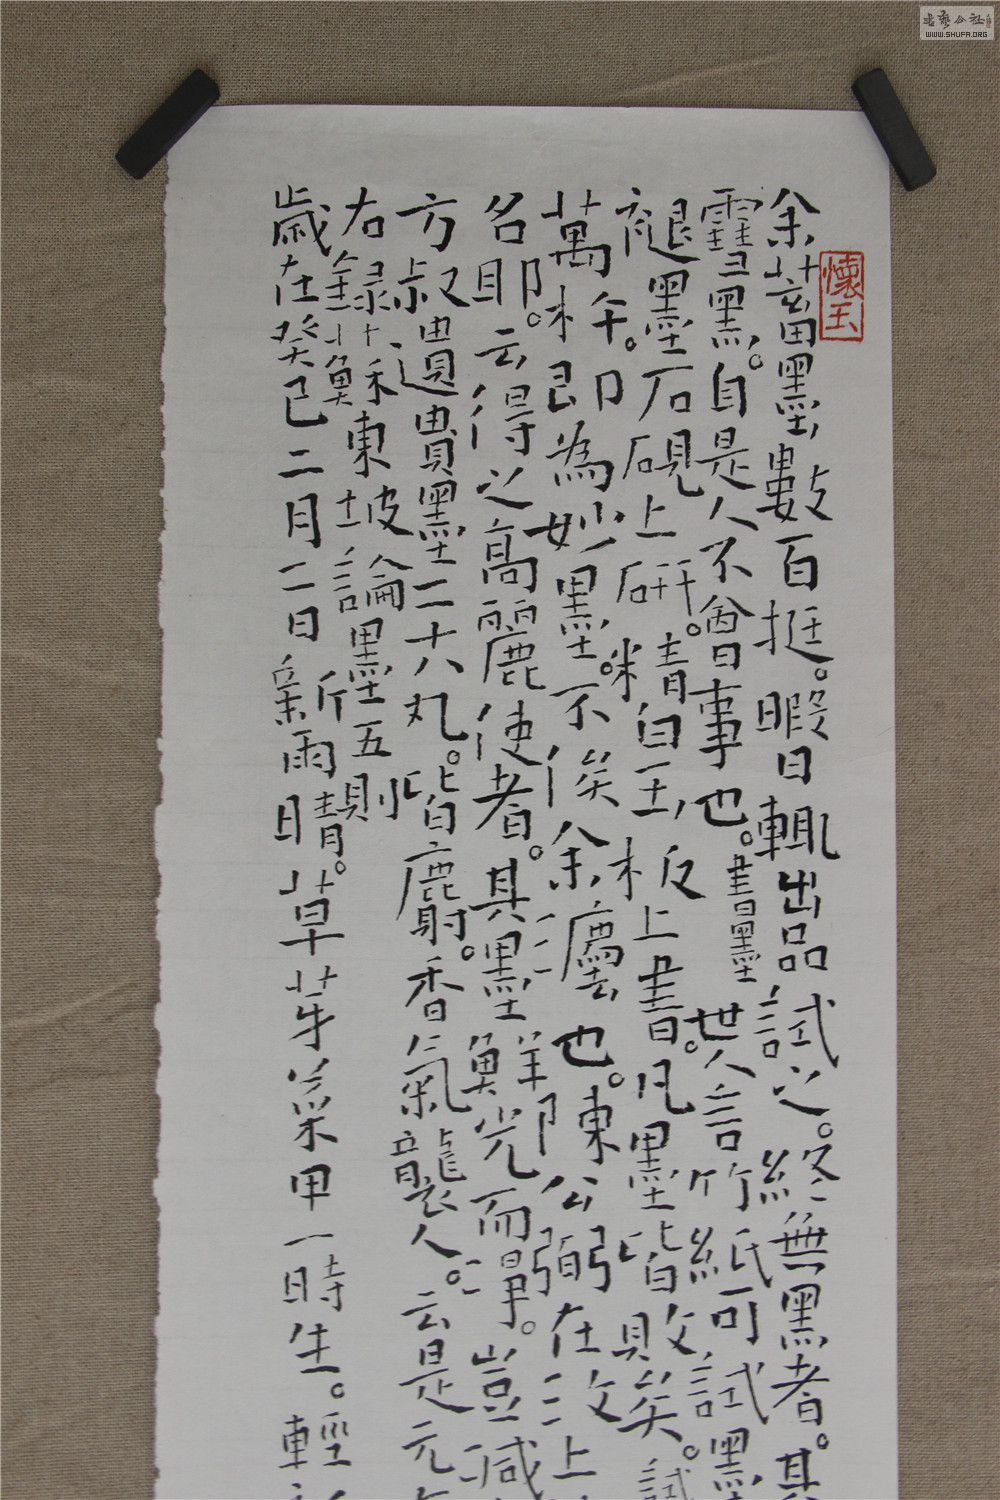 余蓄墨數百挺。暇日輒出品試之。終無黑者。其
雪黑。自是人不會事也。書墨 世人言竹紙可試墨
褪墨石硯上研。精白玉板上書。凡墨皆敗矣。試
萬杵。即為妙墨。不俟余灋也。陳公弼在汶上
名耶。云得之高麗使者。其墨鮮光而淨。豈減
方叔遺貴墨二十八丸。皆麝香氣襲人。云是元
右錄蘇東坡論墨五則
歲在癸巳二月二日新雨晴。草芽菜甲一時生。輕
懷玉
書藝公社
WWW.SHUFA.ORG